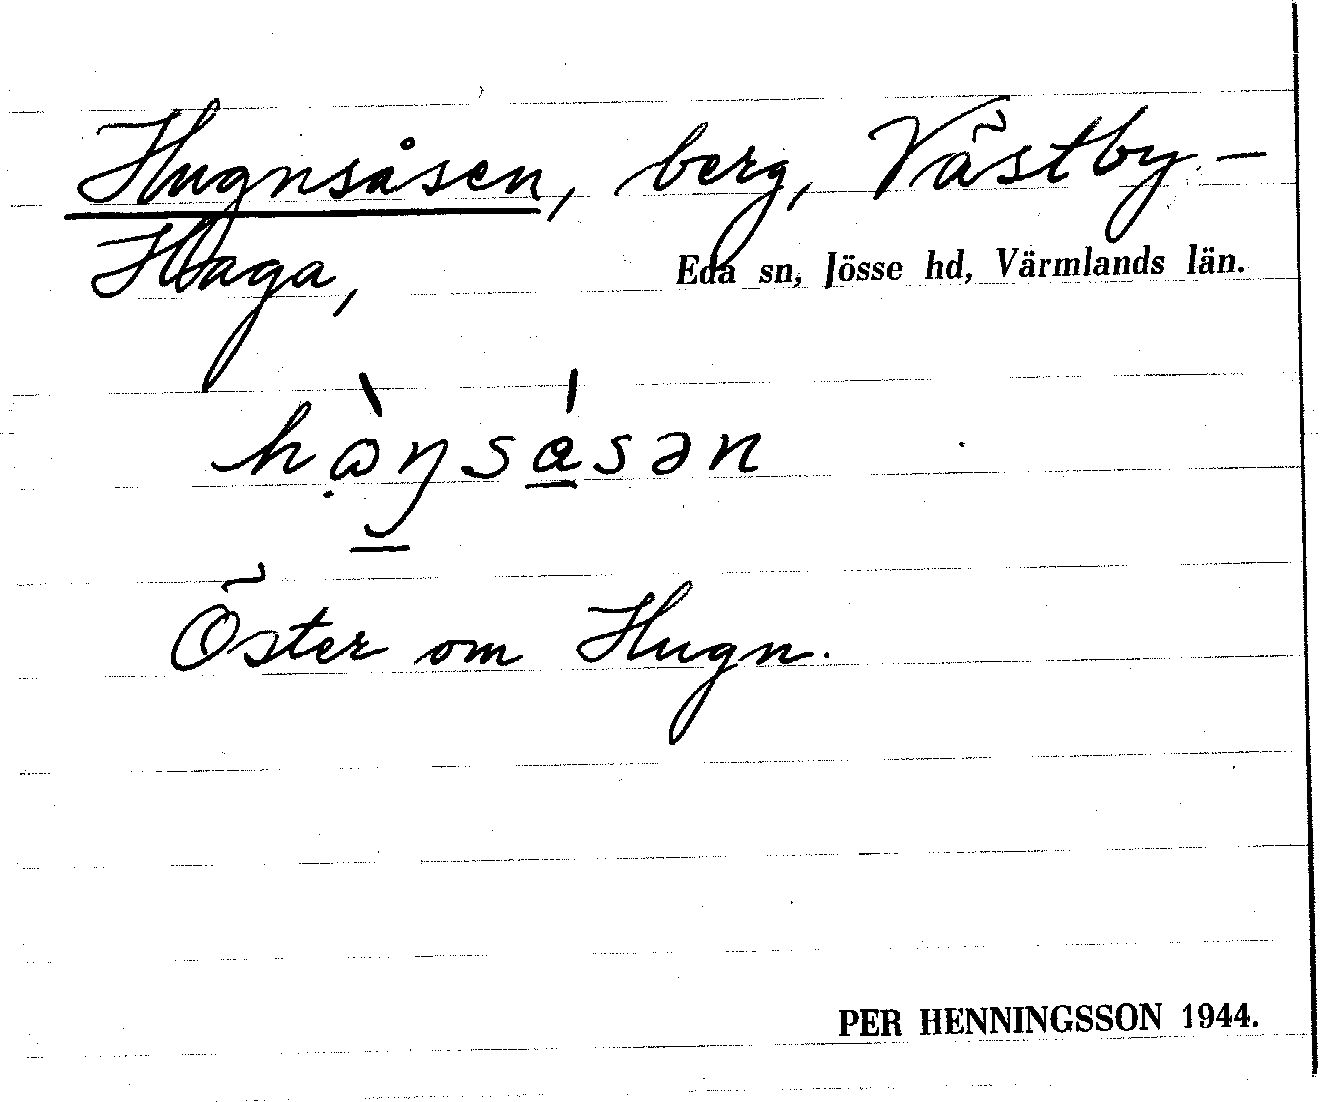 Hugnsåsen, berg, Västby-
Haga, Eda sn, Jösse hd, Värmlands län.
Öster om Hugn.
PER HENNINGSSON 1944.